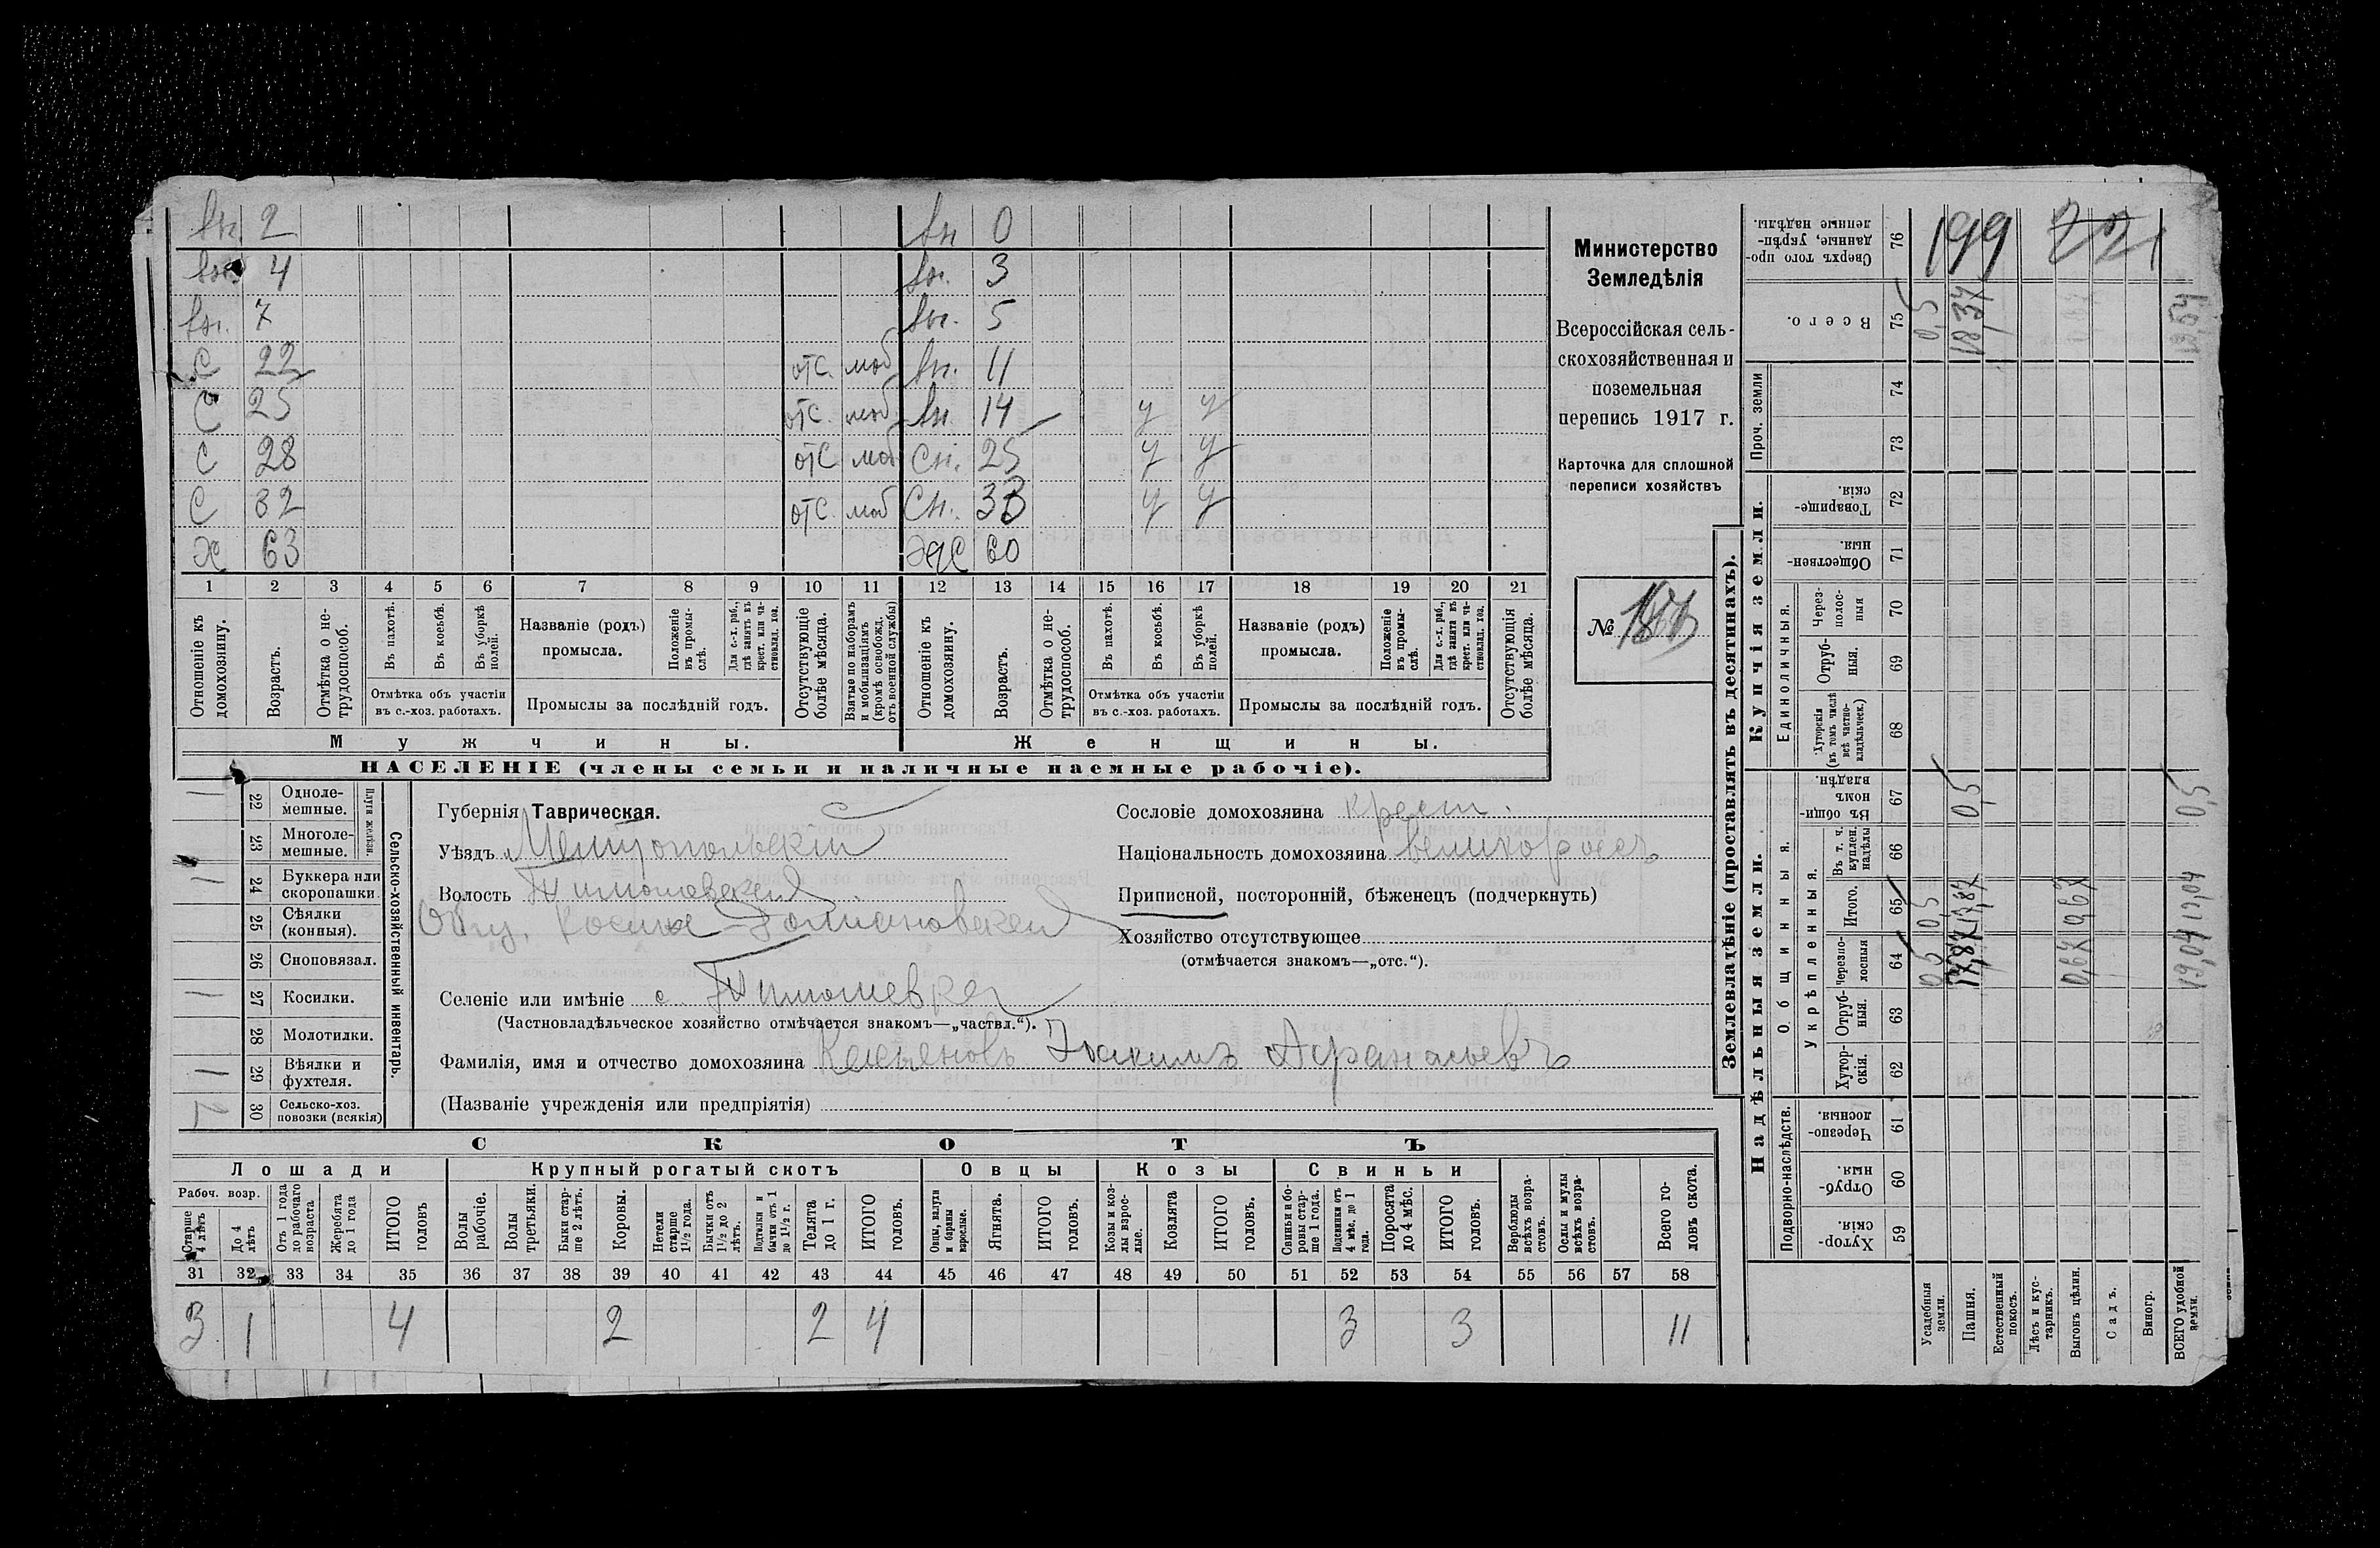 вн. 2 вн 0
вн. 4 вн. 3
вн. 7 вн. 5
С 22 отс. моб вн. 11
С 25 отс. моб. вн. 14 у у
С 28 отс моб сн. 25 у у
С 32 отс. моб Сн. 33 у у
Х 63 60
1 2 3 4 5 6 7 8 9 10 11 12 13 14 15 16 17 18 19 20 21
Отношеніе къ домохозяину.
Возрастъ.
Отмѣтка о не-
трудоспособ.
Въ пахотѣ.
Въ косьбѣ.
Въ уборкѣ полей.
Отмѣтка объ участіи
въ с.-хоз. работахъ.
Названіе (родъ)
промысла.
Положеніе
въ промы-
слѣ.
Для с.-х. раб.,
гдѣ занятъ въ
крест. или ча-
стновлад. хоз.
Промыслы за послѣдній годъ.
Отсутствующіе
болѣе мѣсяца.
Взятые по наборамъ
и мобилизаціямъ
(кромѣ освобожд.
отъ военной службы)
Отношеніе къ
домохозяину.
Возрастъ.
Отмѣтка о не-
трудоспособ.
Въ пахотѣ.
Въ косьбѣ.
Въ уборкѣ
полей.
Отмѣтка объ участіи
въ с.-хоз. работахъ.
Названіе (родъ)
промысла.
Положеніе
въ промы-
слѣ.
Для с.-х. раб.,
гдѣ занята въ
крест. или ча-
стновлад. хоз.
Промыслы за послѣдній годъ.
Отсутствующія
болѣе мѣсяца.
Мужчины.
Женщины.
НАСЕЛЕНІЕ (члены семьи и наличные наемные рабочіе).
Министерство
Земледѣлія
Всероссійская сель-
скохозяйственная и
поземельная
перепись 1917 г.
Карточка для сплошной
переписи хозяйствъ
№
Сельско-хозяйственный инвентарь.
Плуги желѣзн.
1 22 Одноле-
мешные.
23 Многоле-
мешные.
1 24 Буккера или
скоропашки
25 Сѣялки
(конныя).
26 Сноповязал.
1 27 Косилки.
28 Молотилки.
1 29 Вѣялки и
фухтеля.
30 Сельско-хоз.
повозки (всякія)
Губернія Таврическая.
Уѣздъ Мелитопольскій
Волость Тимошевская
Селеніе или имѣніе с. Тимошевка
(Частновладѣльческое хозяйство отмѣчается знакомъ—„частвл.“).
Фамилія, имя и отчество домохозяина Касьяновъ Іоакимъ Афанасьевъ
(Названіе учрежденія или предпріятія)
Сословіе домохозяина крест.
Національность домохозяина великороссъ
Приписной, посторонній, бѣженецъ (подчеркнуть)
Хозяйство отсутствующее
(отмѣчается знакомъ—„отс.“).
СКОТЪ
Лошади
Крупный рогатый скотъ
Овцы
Козы
Свиньи
Рабоч. возр.
Старше
4 лѣтъ
До 4
лѣтъ
Отъ 1 года
до рабочаго
возраста
Жеребята
до 1 года
ИТОГО
головъ
Волы
рабочіе.
Волы
третьяки.
Быки стар-
ше 2 лѣтъ.
Коровы.
Нетели
старше
1½ года.
Бычки отъ
1½ до 2
лѣтъ.
Подтелки и
бычки отъ 1
до 1½ г.
Телята
до 1 г.
ИТОГО
головъ.
Овцы, валухи
и бараны
взрослые.
Ягнята.
ИТОГО
головъ.
Козы и коз-
лы взрос-
лые.
Козлята
ИТОГО
головъ.
Свиньи и бо-
ровы стар-
ше 1 года.
Подсвинки отъ
4 мѣс. до 1
года.
Поросята
до 4 мѣс.
ИТОГО
головъ.
Верблюды
всѣхъ возра-
стовъ.
Ослы и мулы
всѣхъ возра-
стовъ.
Всего го-
ловъ скота.
31 32 33 34 35 36 37 38 39 40 41 42 43 44 45 46 47 48 49 50 51 52 53 54 55 56 57 58
3 1 4 2 2 4 3 3 11
Землевладѣніе (проставлять въ десятинахъ).
Купчія земли.
Надѣльныя земли.
Сверхъ того про-
данные, укрѣп-
ленные надѣлы.
76 199
Всего.
75 0,5 18,37
Проч. земли
74
73
Товарище-
скія.
72
Обществен-
ныя.
71
Единоличныя.
Через-
полос-
ныя
70
Отруб-
ныя.
69
Хуторскія
(въ томъ числѣ
всѣ частно-
владѣльческ.)
68
Общинныя.
Въ общи-
номъ
владѣн.
67 0,5 0,5
Укрѣпленныя.
Въ т. ч.
куплен.
надѣлы
66
Итого.
65 0,5 17,87 0,67 19,04
Черезпо-
лосныя
64 0,5 17,87 0,67 19,04
Отруб-
ныя.
63
Хутор-
скія.
62
Подворно-наслѣдств.
Черезпо-
лосныя.
61
Отруб-
ныя.
60
Хутор-
скія.
59
Усадебныя
земли.
Пашня.
Естественный
покосъ.
Лѣсъ и кус-
тарникъ.
Выгонъ цѣлин.
Садъ.
Виногр.
ВСЕГО удобной
земли.